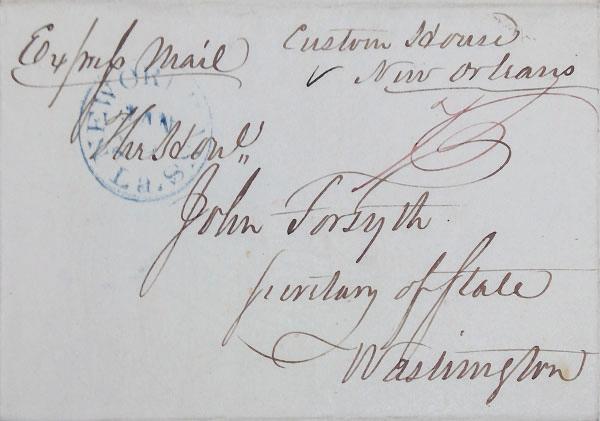 Express Mail
Custom House
New Orleans
NEW ORLEANS
JAN
La.
The Honl.,,
John Forsyth
Secretary of State
Washington